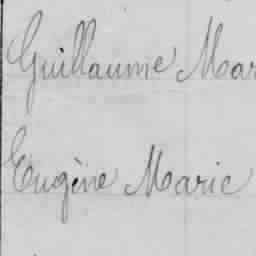 Guillaume Mar
Eugène Marie